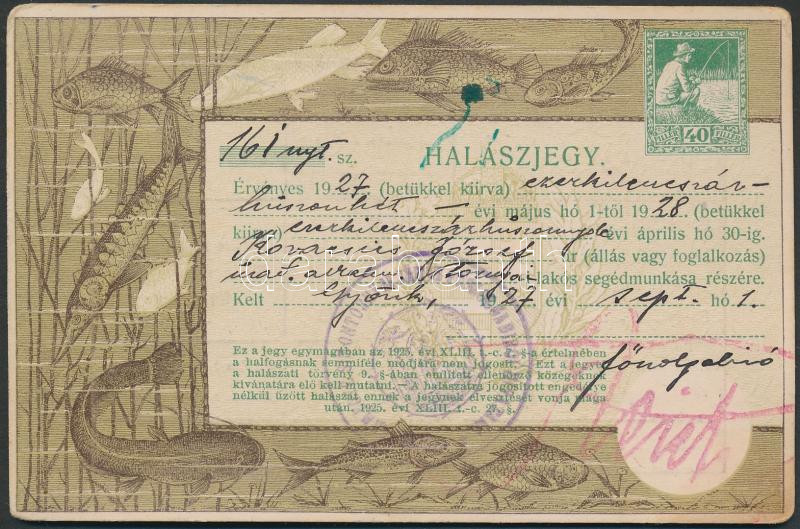 40
161 nyt. sz. HALÁSZJEGY.
Érvényes 1927 (betükkel kiírva) ezerkilencszáz-
huszonhét — évi május hó 1-től 1928. (betükkel
kiírva) ezerkilencszázhusznnyolc évi április hó 30-ig.
Kovacsics József úr (állás vagy foglalkozás)
lakós segédmunkása részére.
Kelt Győnk, 1927 évi sept. hó 1.
Ez a jegy egymagában az 1925. évi XLIII. t.-c. §-a értelmében
a halfogásnak semmiféle módjára nem jogosit. — Ezt a jegyet
a halászati törvény §-ában emlitett ellenőrző közegeknek
kivánatára elő kell mutatni. — A halászatra jogositott engedélye
nélkül üzött halászat ennek a jegynek elvesztését vonja maga
után. 1925. évi XLIII. t.-c. 27. §.
főszolgabiró